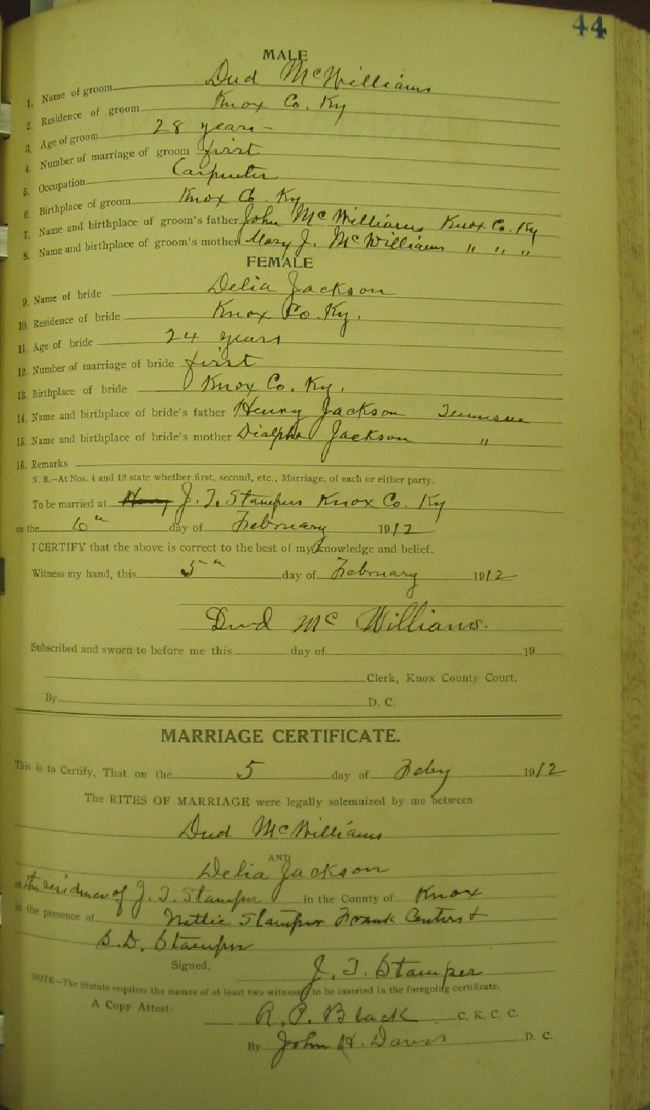 44
MALE
1. Name of groom Dud McWilliams
2. Residence of groom Knox Co. Ky
3. Age of groom 28 years
4. Number of marriage of groom first
5. Occupation Carpenter
6. Birthplace of groom Knox Co. Ky
7. Name and birthplace of groom's father John McWilliams Knox Co. Ky
8. Name and birthplace of groom's mother Mary J. McWilliams " " "
FEMALE
9. Name of bride Delia Jackson
10. Residence of bride Knox Co. Ky.
11. Age of bride 24 years
12. Number of marriage of bride first
13. Birthplace of bride Knox Co. Ky.
14. Name and birthplace of bride's father Henry Jackson Tennessee
15. Name and birthplace of bride's mother Jackson "
16. Remarks
N. B.—At Nos. 4 and 12 state whether first, second, etc., Marriage, of each or either party.
To be married at J. T. Stampers Knox Co. Ky
on the day of February 1912
I CERTIFY that the above is correct to the best of my knowledge and belief.
Witness my hand, this 5th day of February 1912
Dud McWilliams.
Subscribed and sworn to before me this day of 19
Clerk, Knox County Court.
By D. C.
MARRIAGE CERTIFICATE.
This is to Certify, That on the 5 day of Feby 1912
The RITES OF MARRIAGE were legally solemnized by me between
Dud McWilliams
AND
Delia Jackson
at the residence of J. T. Stamper in the County of Knox
in the presence of Nettie Stamper Frank Centers +
S. D. Stamper
Signed, J. T. Stamper
NOTE—The Statute requires the names of at least two witness to be inserted in the foregoing certificate.
A Copy Attest: R. P. Black C. K. C. C.
By John H. Davis D. C.